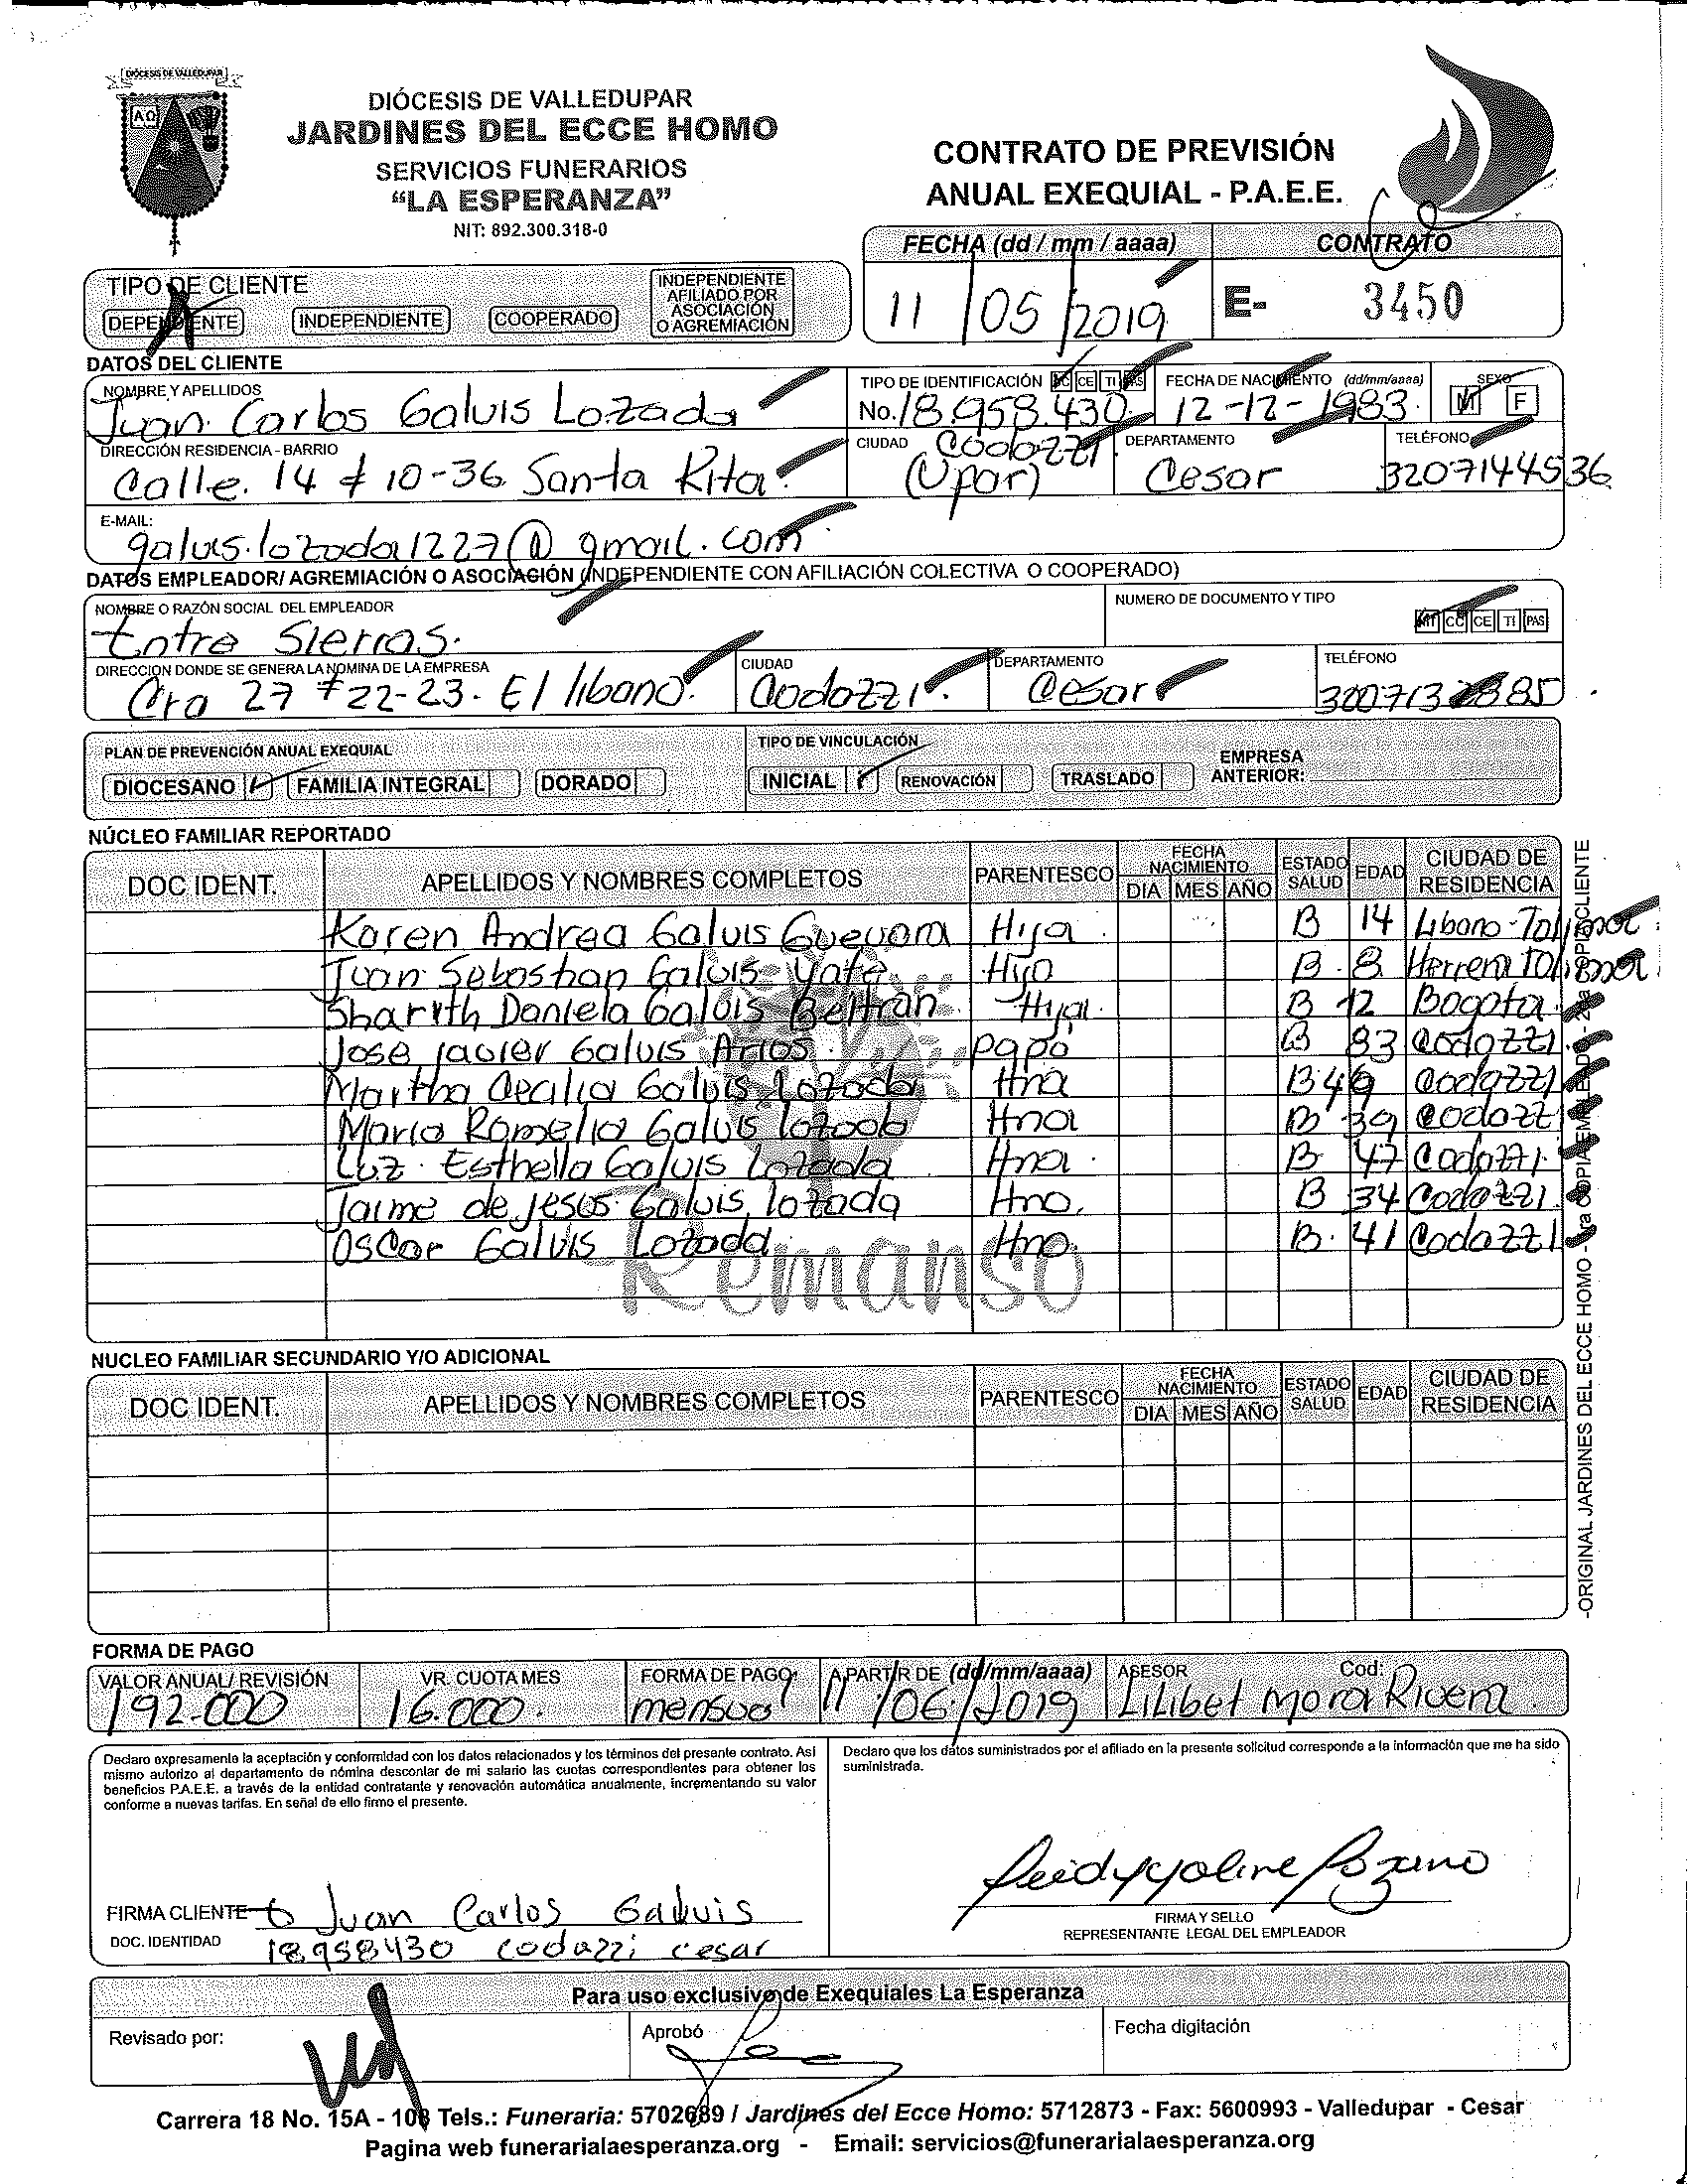 DIÓCESIS DE VALLEDUPAR
DIÓCESIS DE VALLEDUPAR
JARDINES DEL ECCE HOMO
SERVICIOS FUNERARIOS
“LA ESPERANZA”
NIT: 892.300.318-0
CONTRATO DE PREVISIÓN
ANUAL EXEQUIAL - P.A.E.E.
FECHA (dd / mm / aaaa) CONTRATO
11 / 05 / 2019 E- 3450
TIPO DE CLIENTE
DEPENDIENTE INDEPENDIENTE COOPERADO INDEPENDIENTE AFILIADO POR ASOCIACIÓN O AGREMIACIÓN
DATOS DEL CLIENTE
NOMBRE Y APELLIDOS TIPO DE IDENTIFICACIÓN CC CE TI PAS FECHA DE NACIMIENTO (dd/mm/aaaa) SEXO
Juan Carlos Galvis Lozada No. 18.958.430 12-12-1983 M F
DIRECCIÓN RESIDENCIA - BARRIO CIUDAD DEPARTAMENTO TELÉFONO
Calle. 14 # 10-36 Santa Rita Codazzi (Upar) Cesar 3207144536
E-MAIL:
galvis.lozada1227@gmail.com
DATOS EMPLEADOR/ AGREMIACIÓN O ASOCIACIÓN (INDEPENDIENTE CON AFILIACIÓN COLECTIVA O COOPERADO)
NOMBRE O RAZÓN SOCIAL DEL EMPLEADOR NUMERO DE DOCUMENTO Y TIPO
Entre Sierras. NIT CC CE TI PAS
DIRECCION DONDE SE GENERA LA NOMINA DE LA EMPRESA CIUDAD DEPARTAMENTO TELÉFONO
Cra 27 # 22-23. El libano. Codazzi. Cesar
PLAN DE PREVENCIÓN ANUAL EXEQUIAL TIPO DE VINCULACIÓN
DIOCESANO FAMILIA INTEGRAL DORADO INICIAL RENOVACIÓN TRASLADO EMPRESA ANTERIOR:
NÚCLEO FAMILIAR REPORTADO
DOC IDENT. APELLIDOS Y NOMBRES COMPLETOS PARENTESCO FECHA NACIMIENTO DIA MES AÑO ESTADO SALUD EDAD CIUDAD DE RESIDENCIA
Karen Andrea Galvis Guevara Hija B 14 Libano-Tolima
Juan Sebastian Galvis Yate Hijo B 8 Herrera Tolima
Sharith Daniela Galvis Beltran Hija. B 12 Bogota
Jose Javier Galvis Arios papá B 83 Codazzi
Martha Cecilia Galvis Lozada Hna B 49 Codazzi
Maria Romelia Galvis Lozada Hna B 39 Codazzi
Luz Esthella Galvis Lozada Hna. B 47 Codazzi
Jaime de Jesus Galvis lozada Hno. B 34 Codazzi
Oscar Galvis Lozada Hno. B 41 Codazzi
Remanso
NUCLEO FAMILIAR SECUNDARIO Y/O ADICIONAL
DOC IDENT. APELLIDOS Y NOMBRES COMPLETOS PARENTESCO FECHA NACIMIENTO DIA MES AÑO ESTADO SALUD EDAD CIUDAD DE RESIDENCIA
-ORIGINAL JARDINES DEL ECCE HOMO - 1ra COPIA EMPLEADO - 2da COPIA CLIENTE
FORMA DE PAGO
VALOR ANUAL/ REVISIÓN VR. CUOTA MES FORMA DE PAGO A PARTIR DE (dd/mm/aaaa) ASESOR Cod:
192.000 16.000. mensual 11/06/2019 Lilibet Mora Rivera
Declaro expresamente la aceptación y conformidad con los datos relacionados y los términos del presente contrato. Así
mismo autorizo al departamento de nómina descontar de mi salario las cuotas correspondientes para obtener los
beneficios P.A.E.E. a través de la entidad contratante y renovación automática anualmente, incrementando su valor
conforme a nuevas tarifas. En señal de ello firmo el presente.
Declaro que los datos suministrados por el afiliado en la presente solicitud corresponde a la información que me ha sido
suministrada.
FIRMA CLIENTE Juan Carlos Galvis
DOC. IDENTIDAD 18958430 codazzi cesar
FIRMA Y SELLO
REPRESENTANTE LEGAL DEL EMPLEADOR
Para uso exclusivo de Exequiales La Esperanza
Revisado por: Aprobó Fecha digitación
Carrera 18 No. 15A - 108 Tels.: Funeraria: 5702689 / Jardines del Ecce Homo: 5712873 - Fax: 5600993 - Valledupar - Cesar
Pagina web funerarialaesperanza.org - Email: servicios@funerarialaesperanza.org